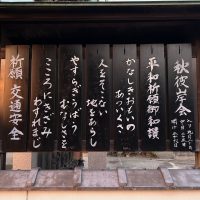 秋彼岸会
平和祈願御和讃
かなしきおもいの
あついくさ
人をそこない
地をあらし
やすらぎうばう
むなしさを
こころにきざみ
わすれまじ
祈願 交通安全